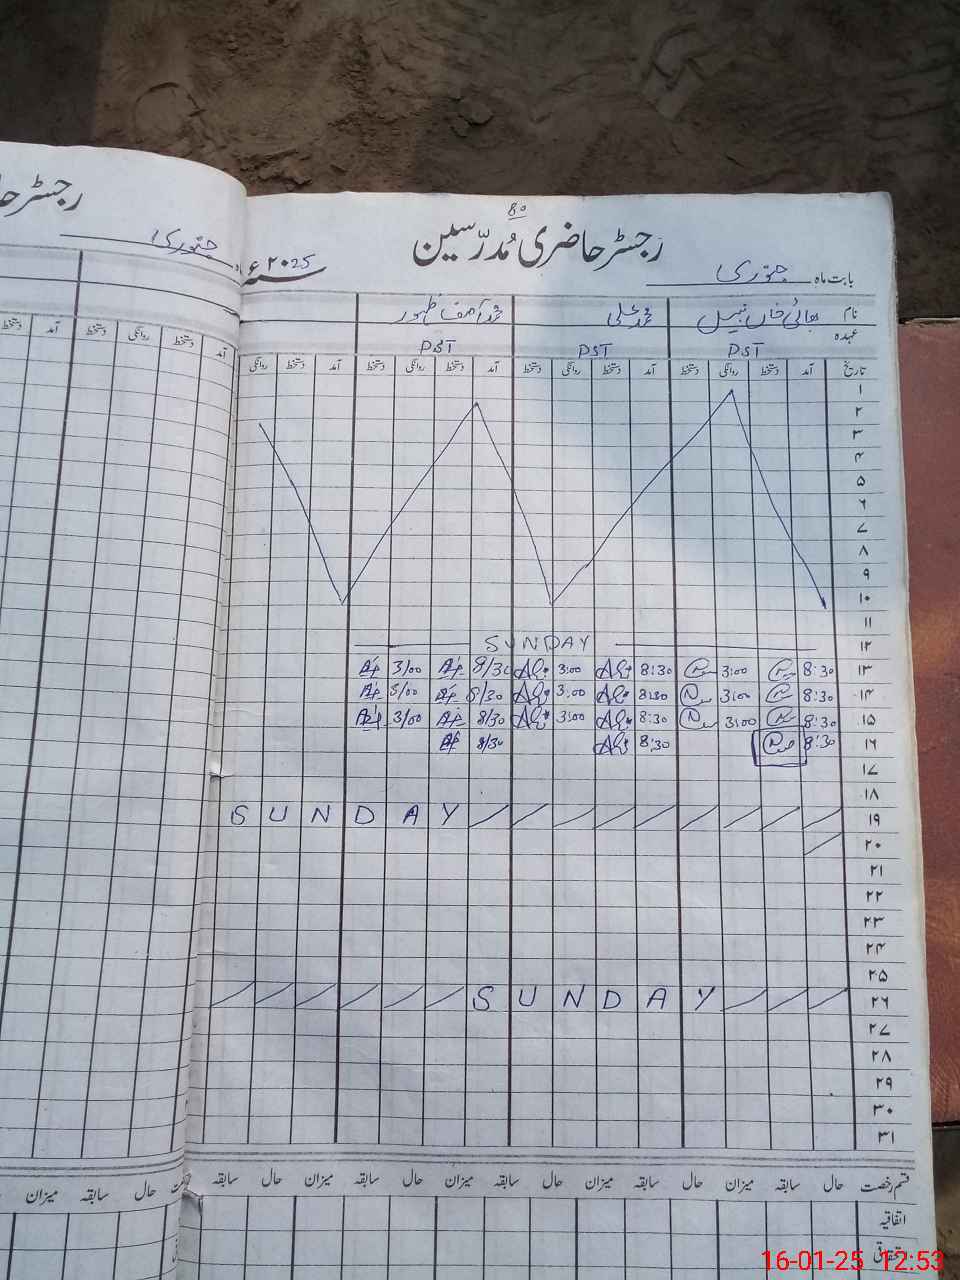 رجسٹر حا
جنوری
80
رجسٹر حاضری مُدرّسین
بابت ماہ جنوری سنہ ۲۰25ء
نام بھائی خان نبیل محمد علی محمد آصف ظہور
عہدہ PST PST PST
تاریخ آمد دستخط روانگی دستخط آمد دستخط روانگی دستخط آمد دستخط روانگی دستخط آمد دستخط روانگی
آمد دستخط روانگی دستخط آمد
۱
۲
۳
۴
۵
۶
۷
۸
۹
۱۰
۱۱
۱۲ SUNDAY
۱۳ 8:30 3:00 8:30 Ali 3:00 Ali 8/30 3/00
۱۴ 8:30 3:00 8:30 Ali 3:00 Ali 8/30 3/00
۱۵ 8:30 3:00 8:30 Ali 3:00 Ali 8/30 3/00
۱۶ 8:30 8:30 Ali 8/30
۱۷
۱۸
۱۹ SUNDAY
۲۰
۲۱
۲۲
۲۳
۲۴
۲۵
۲۶ SUNDAY
۲۷
۲۸
۲۹
۳۰
۳۱
قسم رخصت حال سابقہ میزان حال سابقہ میزان حال سابقہ میزان حال سابقہ
حال سابقہ میزان
اتفاقیہ
16-01-25 12:53